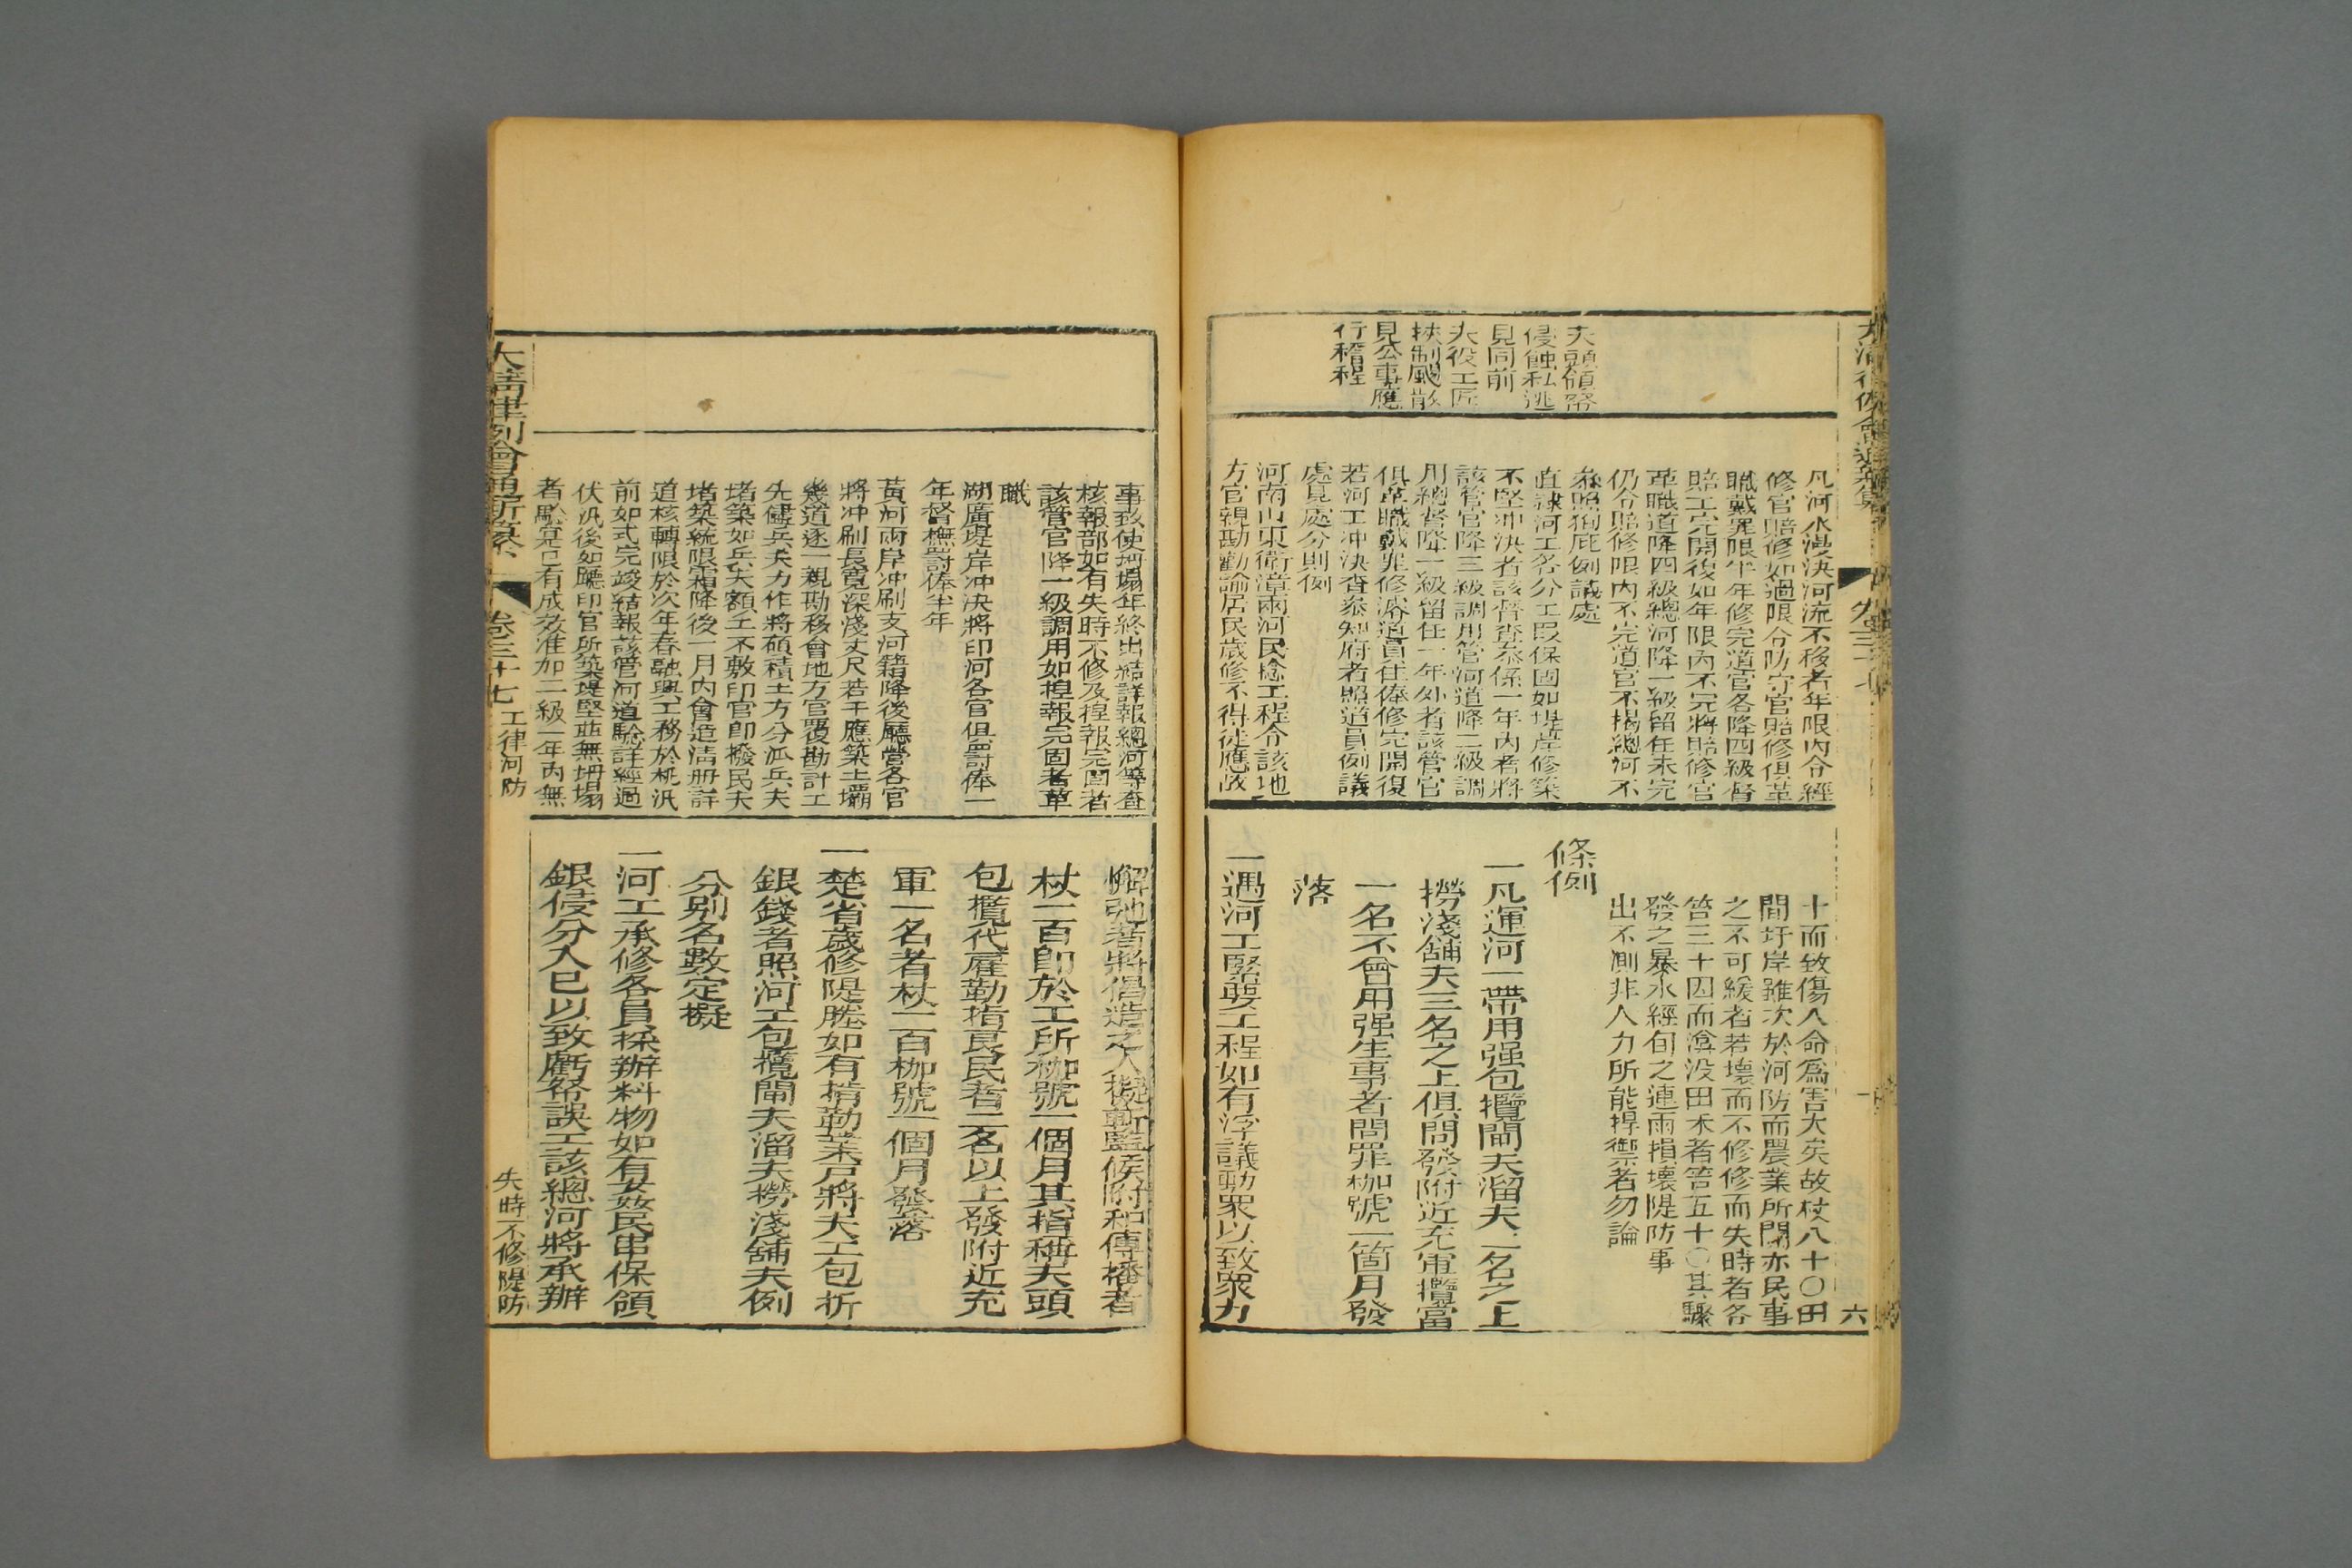 夫頭領帑
侵蝕私逃
見同前
夫役工匠
挾制颺散
見公事應
行稽程
凡河水漫決河流不移者年限內令經
修官賠修如過限令防守官賠修俱革
職戴罪限半年修完道官各降四級督
賠工完開復如年限內不完將賠修官
革職道降四級總河降一級留任未完
仍令賠修限內不完道官不揭總河不
叅照徇庇例議處
直隸河工各分工叚保固如堤岸修築
不堅冲決者該督查叅係一年內者將
該管官降三級調用管河道降二級調
用總督降一級留任一年外者該管官
俱革職戴罪修濬道員住俸修完開復
若河工冲決查叅知府者照道員例議
處見處分則例
河南山東衛漳兩河民埝工程令該地
方官親勘勸諭居民歲修不得從應故
十而致傷人命爲害大矣故杖八十〇田
間圩岸雖次於河防而農業所關亦民事
之不可緩者若壞而不修修而失時者各
笞三十因而渰没田禾者笞五十〇其驟
發之暴水經旬之連雨損壞隄防事
出不測非人力所能捍禦者勿論
條例
一凡運河一帶用强包攬閘夫溜夫二名之上
撈淺舖夫三名之上俱問發附近充軍攬當
一名不曾用强生事者問罪枷號一箇月發
落
一遇河工緊要工程如有浮議動衆以致衆力
六
事致使坍塌年終出結詳報總河等查
核報部如有失時不修及捏報完固者
該管官降一級調用如捏報完固者革
職
湖廣堤岸冲決將印河各官俱罰俸一
年督撫罰俸半年
黃河兩岸冲刷支河籍降後廳營各官
將冲刷長寬深淺丈尺若干應築土壩
幾道逐一親勘移會地方官覆勘計工
先儘兵夫力作將碩積土方分派兵夫
堵築如兵夫額土不敷印官即撥民夫
堵築統限霜降後一月內會造清册詳
道核轉限於次年春融興工務於桃汛
前如式完竣結報該管河道驗詳經過
伏汛後如廳印官所築堤堅並無坍塌
者騐寔已有成效准加二級一年內無
解弛者將倡造之人擬斬監候附和傳播者
杖一百卽於工所枷號一個月其指稱夫頭
包攬代雇勒掯良民者二名以上發附近充
軍一名者杖一百枷號一個月發落
一楚省歲修隄塍如有掯勒業戶將夫工包折
銀錢者照河工包攬閘夫溜夫撈淺舖夫例
分別名數定擬
一河工承修各員採辦料物如有奸民串保領
銀侵分入已以致虧帑誤工該總河將承辦
大清律例會通新纂
卷三十七
工律河防
失時不修隄防